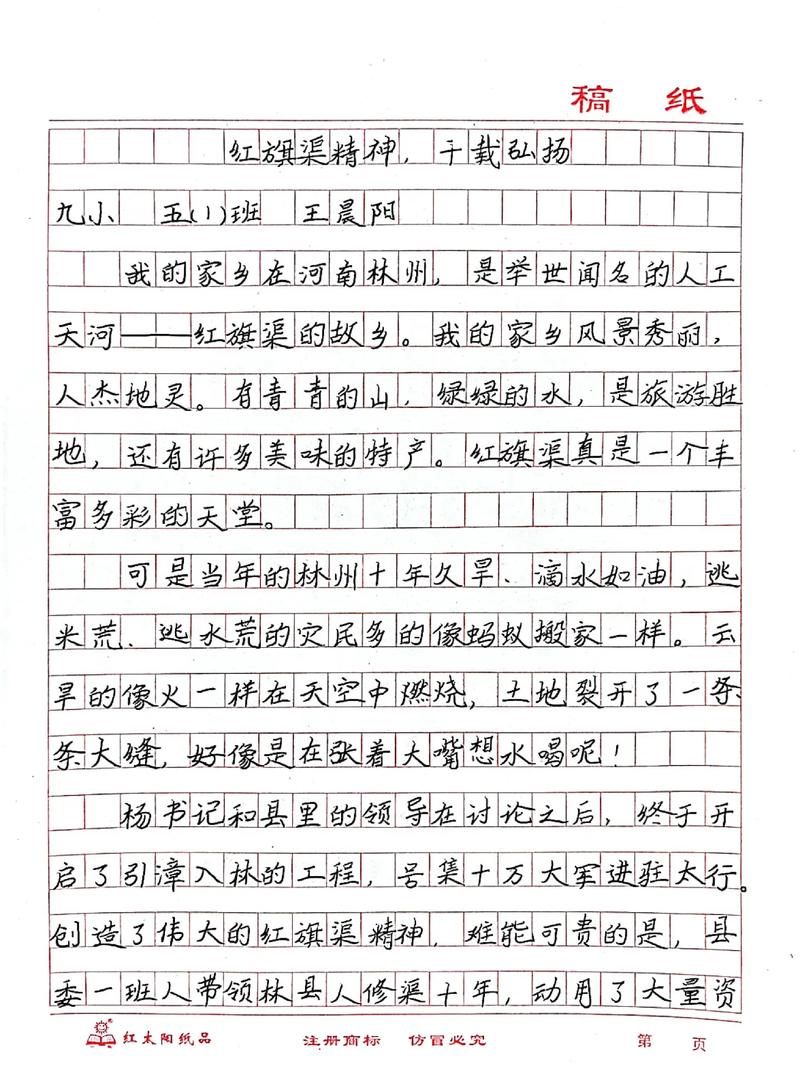 稿 纸
红旗渠精神，千载弘扬
九小 五(1)班 王晨阳
我的家乡在河南林州，是举世闻名的人工
天河——红旗渠的故乡。我的家乡风景秀丽，
人杰地灵。有青青的山，绿绿的水，是旅游胜
地，还有许多美味的特产。红旗渠真是一个丰
富多彩的天堂。
可是当年的林州十年久旱、滴水如油，逃
米荒、逃水荒的灾民多的像蚂蚁搬家一样。云
旱的像火一样在天空中燃烧，土地裂开了一条
条大缝，好像是在张着大嘴想水喝呢！
杨书记和县里的领导在讨论之后，终于开
启了引漳入林的工程，号集十万大军进驻太行。
创造了伟大的红旗渠精神，难能可贵的是，县
委一班人带领林县人修渠十年，动用了大量资
红太阳纸品 注册商标 仿冒必究 第 页